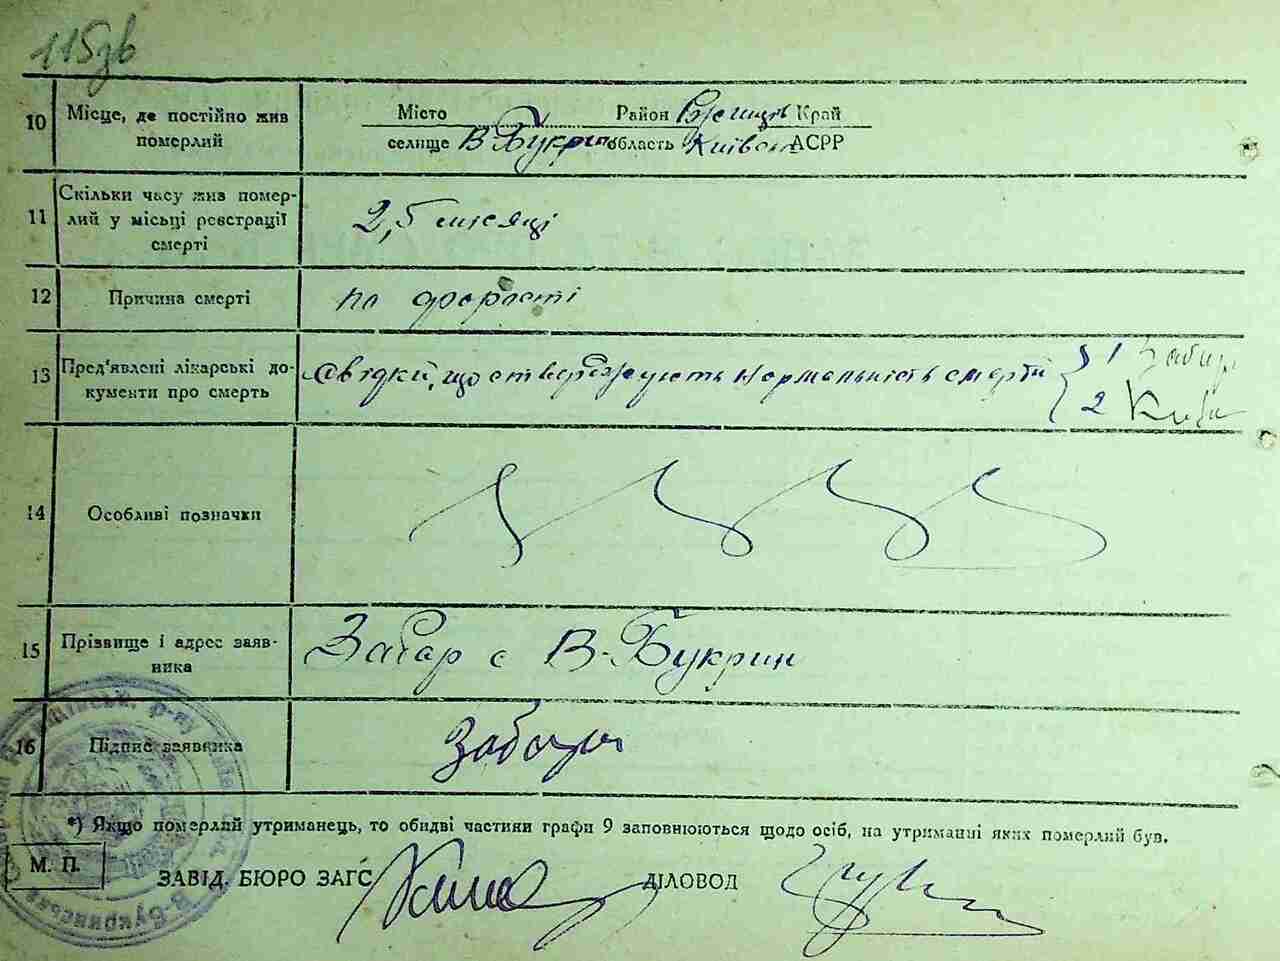 115зв
10 Місце, де постійно жив померлий
Місто Район Ржищів Край
селище В-Букрин область Київськ АСРР
11 Скільки часу жив помер-
лий у місьці реєстрації
смерті
2,5 місяці
12 Причина смерті
по
13 Пред'явлені лікарські до-
кументи про смерть
свідки, що стверджують нормальність смерти { 1 Забар
2
14 Особливі позначки
15 Прізвище і адрес заяв-
ника
Забар с В-Букрин
16 Підпис заявника
Забара
*) Якщо померлий утриманець, то обидві частини графи 9 заповнюються щодо осіб, на утриманні яких померлий був.
М. П.
ЗАВІД. БЮРО ЗАГС
ДІЛОВОД